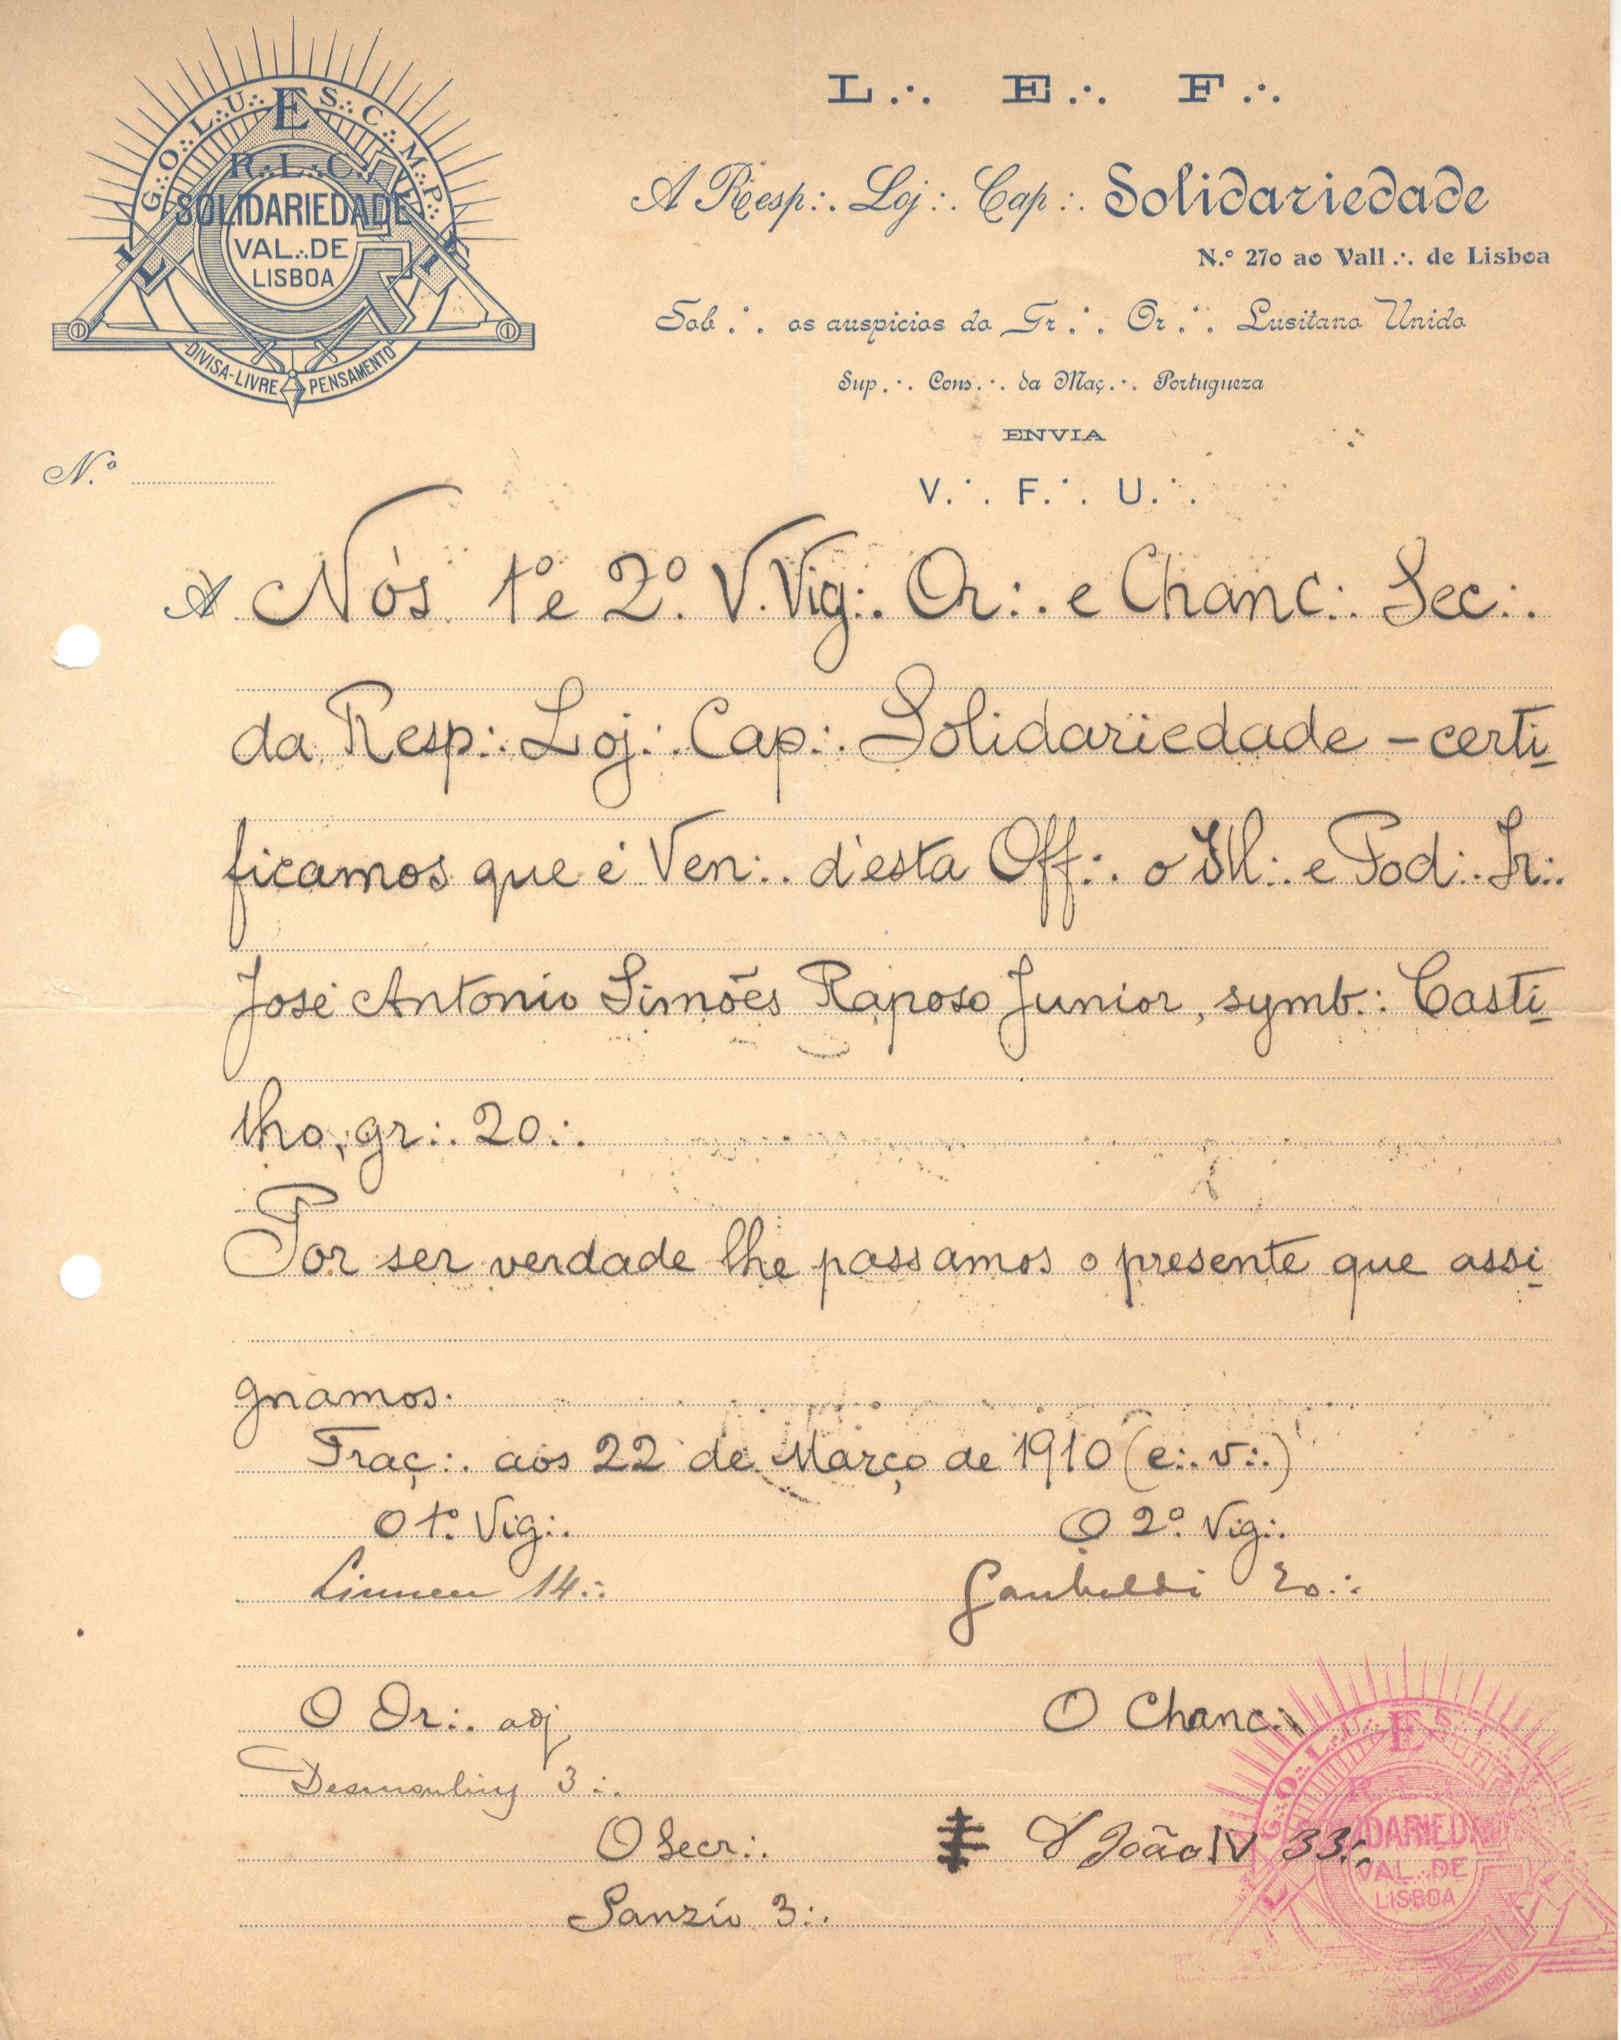 G∴ O∴ L∴ U∴ E S∴ C∴ M∴ P∴
R∴ L∴ C∴
SOLIDARIEDADE
VAL∴ DE
LISBOA
L I
DIVISA-LIVRE PENSAMENTO
L∴ E∴ F∴
A Resp∴ Loj∴ Cap∴ Solidariedade
N.º 270 ao Vall∴ de Lisboa
Sob∴ os auspicios do Gr∴ Or∴ Lusitano Unido
Sup∴ Cons∴ da Maç∴ Portugueza
ENVIA
N.º
V∴ F∴ U∴
A Nós 1º e 2º. V. Vig∴ Or∴ e Chanc∴ Sec∴
da Resp∴ Loj∴ Cap∴ Solidariedade - certi
ficamos que é Ven∴ d'esta Off∴ o Ill∴ e Pod∴ Ir∴
José Antonio Simões Raposo Junior, symb∴ Casti
lho, gr∴ 20∴
Por ser verdade lhe passamos o presente que assi
gnamos.
Traç∴ aos 22 de Março de 1910 (e∴ v∴)
O 1º. Vig∴ O 2º. Vig∴
Linneu 14∴ Garibaldi 20∴
O Or∴ adj O Chanc∴
Desmoulins 3∴
O Secr∴ D João IV 33∴
Sanzio 3∴
G∴ O∴ L∴ U∴ E S∴
R∴ L∴
LIDARIED
VAL∴ DE
LISBOA